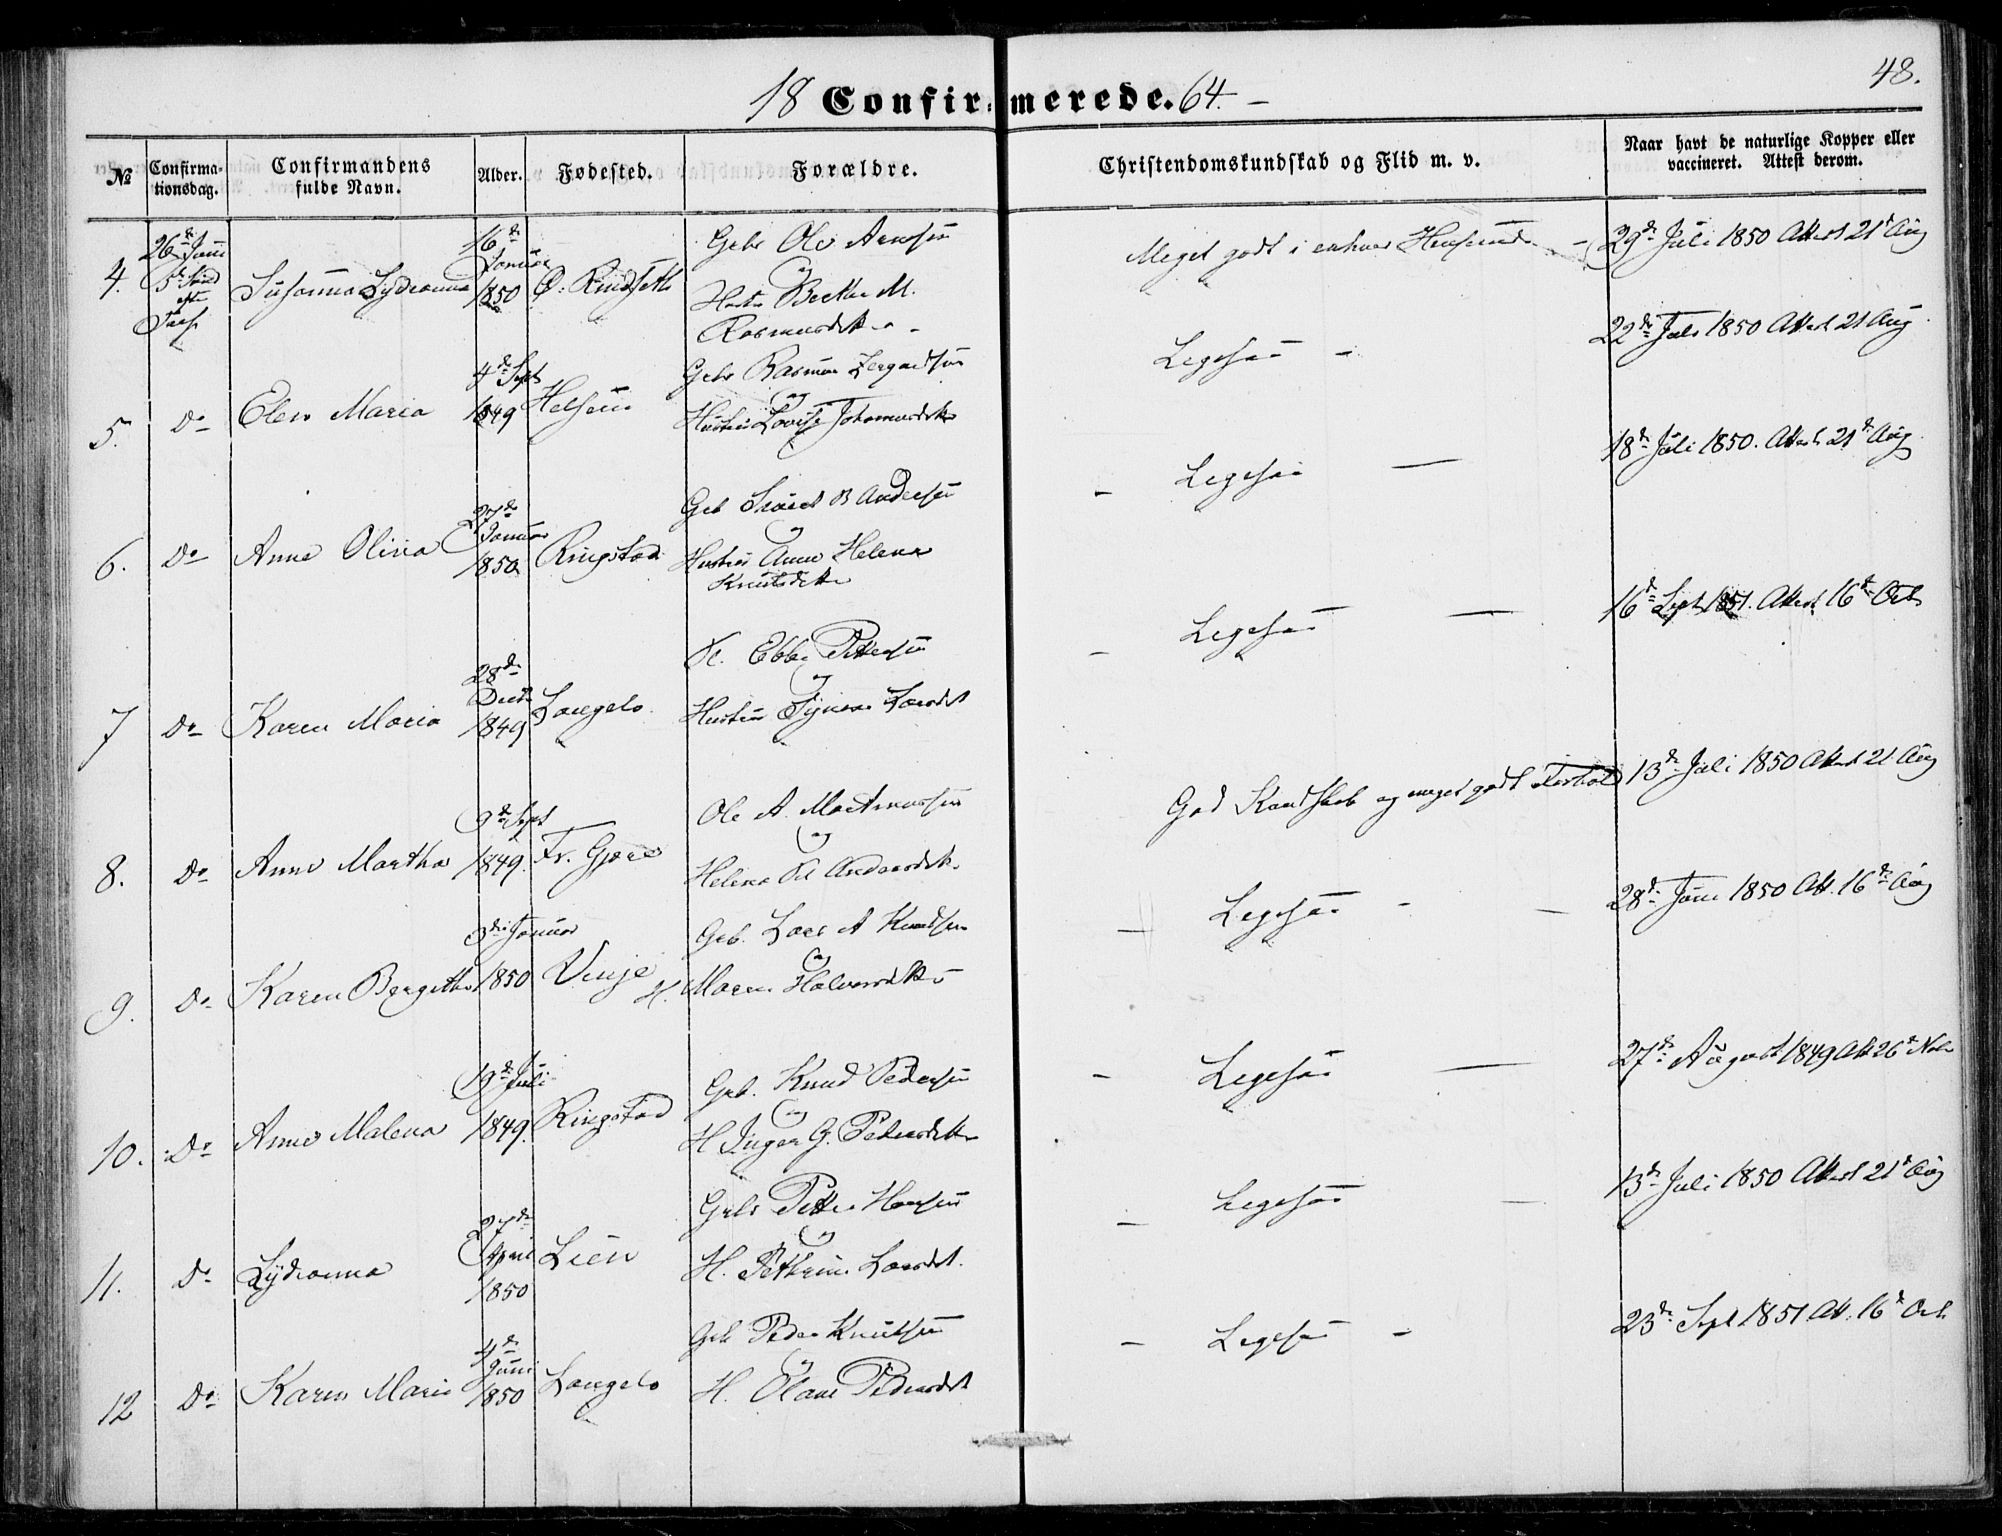 48.
18 Confirmerede. 64. –
№
Confirma-
tionsdag.
Confirmandens
fulde Navn.
Alder.
Fødested.
Forældre.
Christendomskundskab og Flid m. v.
Naar havt de naturlige Kopper eller
vaccineret. Attest derom.
4. 26de Juni 5te Sönd efter Susanna Lydianna 16de Januar 1850
Gbr Ole
og
Rasmusdtr
Meget godt i enhver
29de Juli 1850 Attest 21d Aug
5. Do Elen Maria 4de Sept 1849
Gbr Rasmus
og
Hustru Lovise Johannesdtr
Ligesaa –
22de Juli 1850 Attest 21 Aug
6. Do Anne Olina 27de Januar 1850 Ringstad
Gbr B Andersen
og
Hustru Anne Helena
Knutsdtr
– Ligesaa –
18de Juli 1850. Attest 21de Aug
7 Do Karen Maria 28de Decbr 1849 Langelo
Ebbe Pettersen
og
Hustru Larsdt
– Ligesaa –
16de Sept 1851. Attest 16de Oct
8. Do Anne Martha 9de Sept 1849. Fr. Gjære
Ole A.
og
Helena Andersdtr
God Kundskab og meget godt Forhold
13de Juli 1850 Attest 21 Aug
9. Do Karen Bergitha 3de Januar 1850 Vinje
Gbr. Lars A Knudsen
og
H. Maren Halvorsdtr
– Ligesaa – –
28de Juni 1850 Att. 16de Aug
10. Do Anne Malena 19de Juli 1849. Ringstad
Gbr. Knud Pedersen
og
H Inger G. Pedersdtr
– Ligesaa –
27de August 1849 Att 26d Nov
11. Do Lydianna 27de April 1850 Lien
Gbr Petter Hansen
og
H. Pethrine Larsdt.
– Ligesaa –
13de Juli 1850 Attest 21d Aug
12 Do Karen Marie 4de Juni 1850 Langelo
Gbr Peder Knutsen
og
H. Olave Pedersdt
– Ligesaa –
23de Sept 1851 Att. 16d Oct